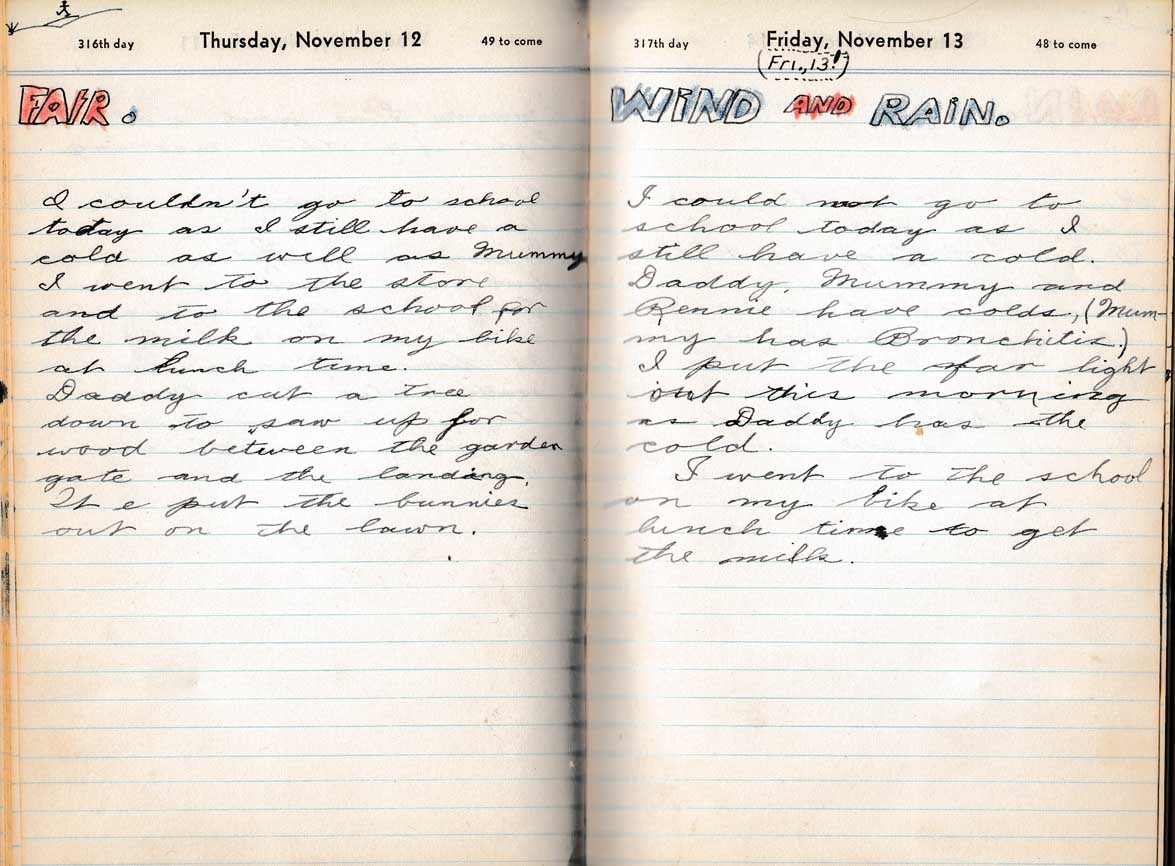 316th day Thursday, November 12 49 to come
FAIR.
I couldn't go to school
today as I still have a
cold as well as Mummy
I went to the store
and to the school for
the milk on my bike
at lunch time.
Daddy cut a tree
down to saw up for
wood between the garden
gate and the landing.
He put the bunnies
out on the lawn.
317th day Friday, November 13 48 to come
(Fri., 13!)
WIND AND RAIN.
I could not go to
school today as I
still have a cold.
Daddy, Mummy and
Rennie have colds, (Mum-
my has Bronchitis.)
I put the far light
out this morning
as Daddy has the
cold.
I went to the school
on my bike at
lunch time to get
the milk.